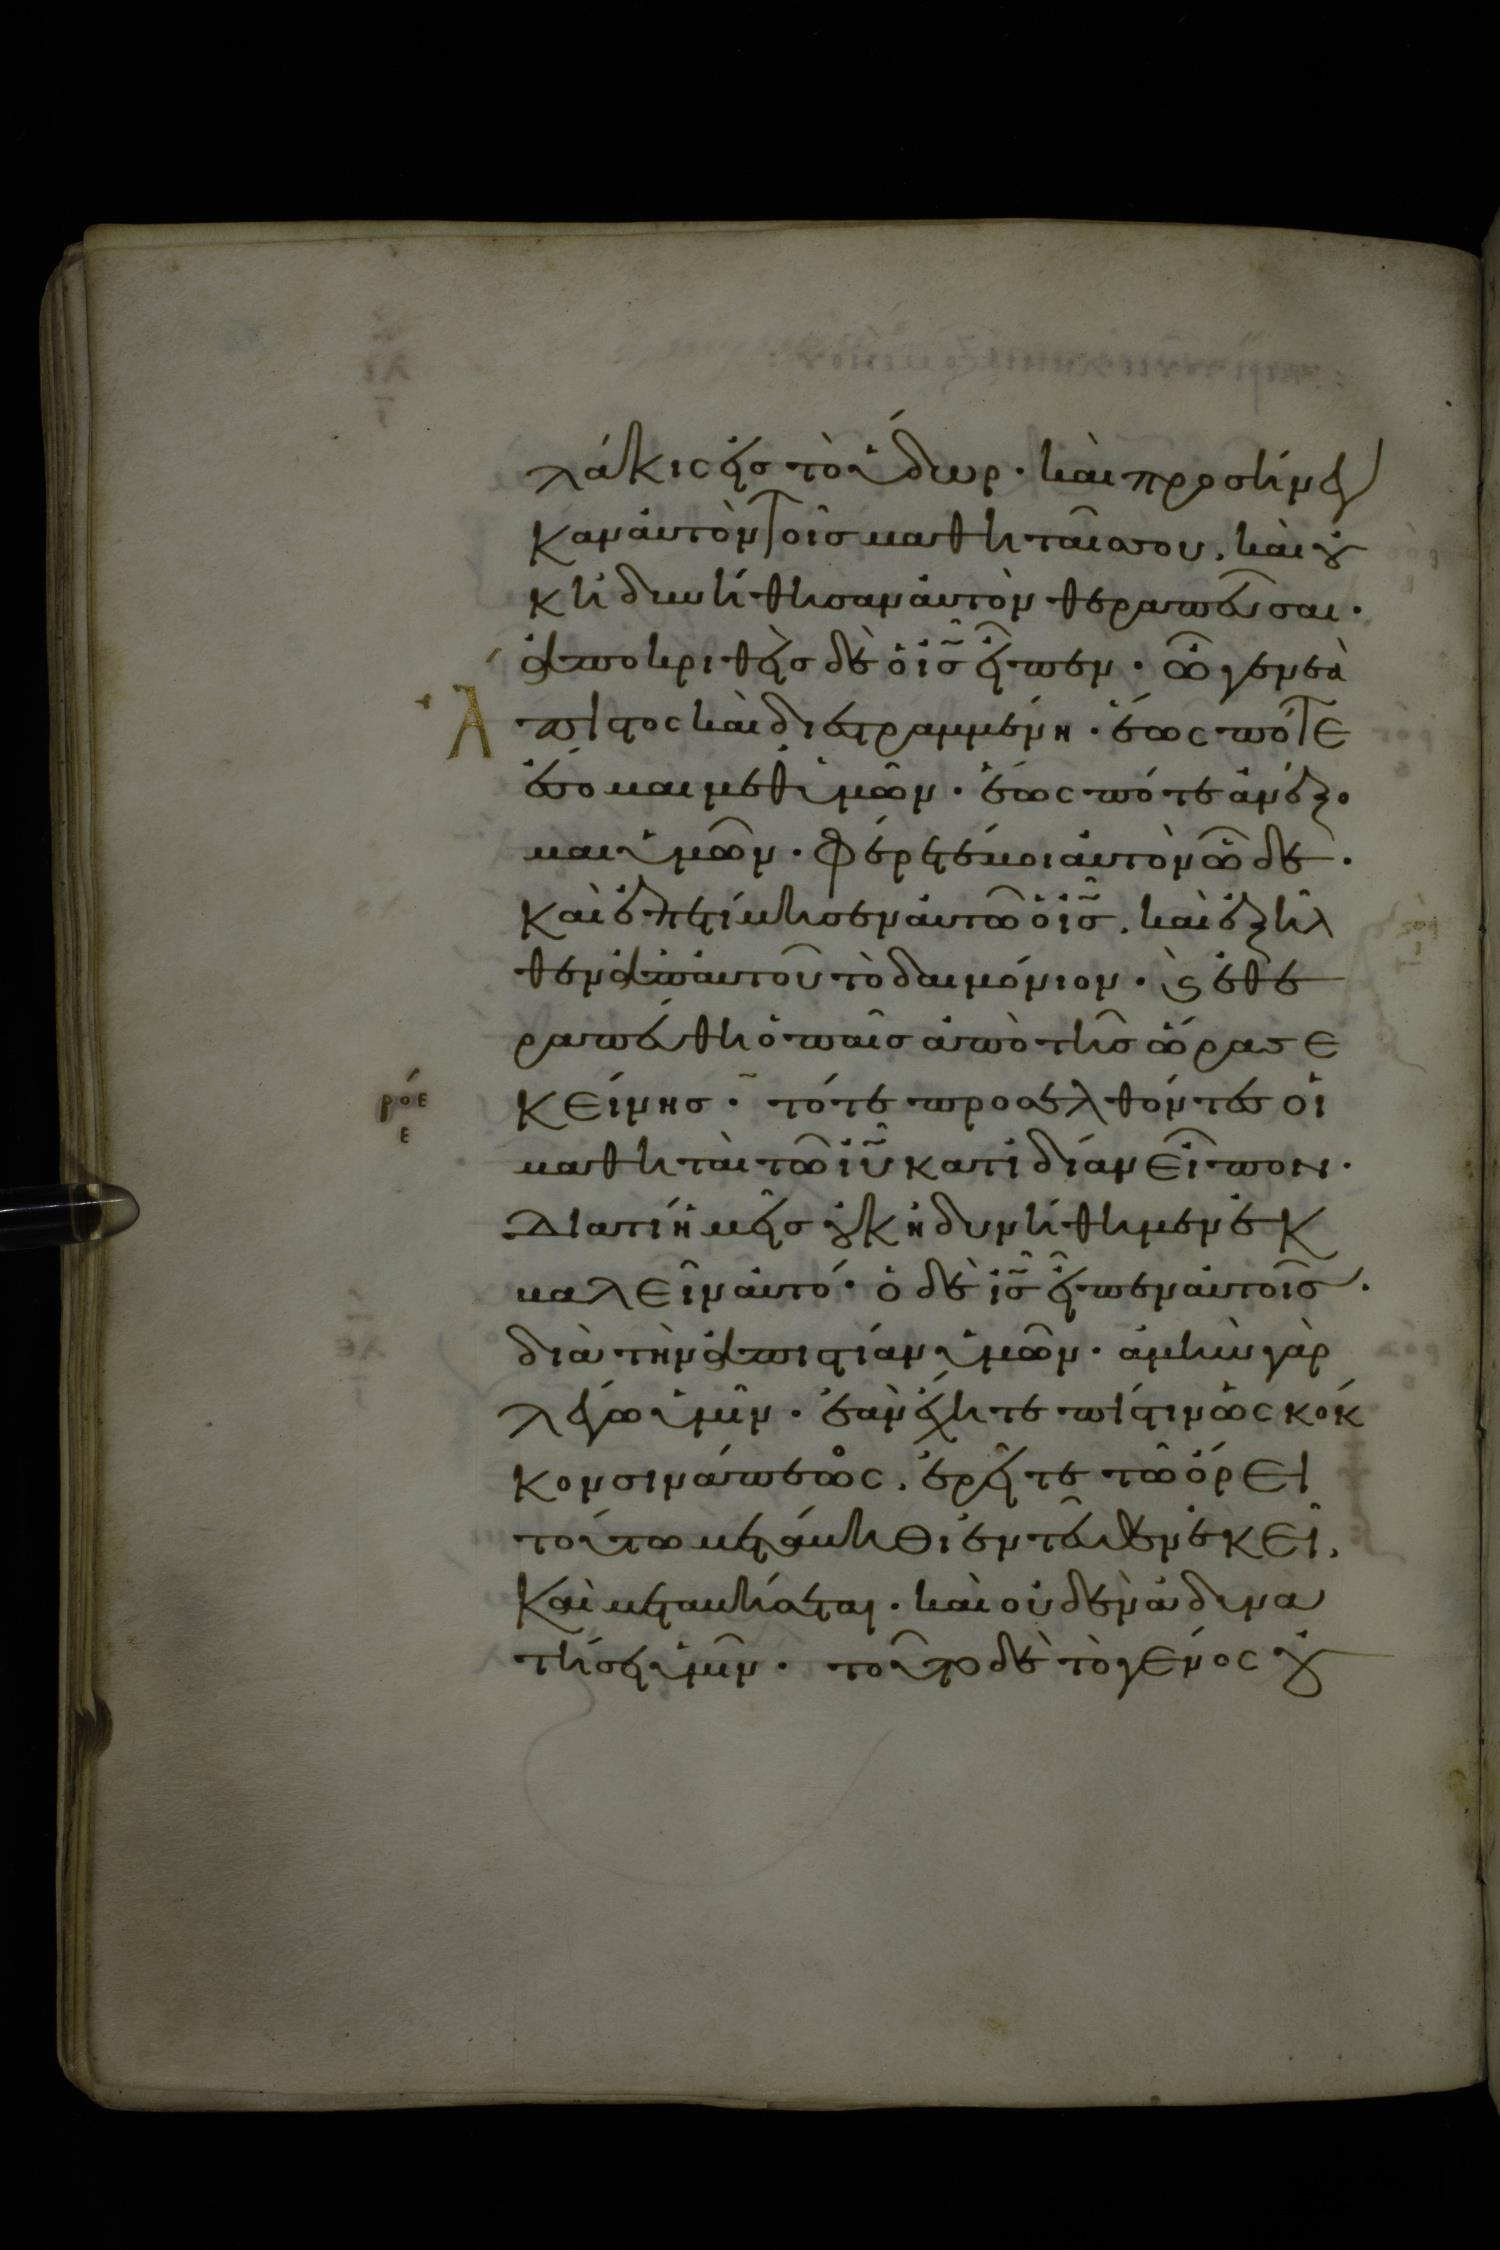 λάκις εἰς τὸ ὕδωρ· καὶ προσήνεγ
καν αὐτὸν τοῖς μαθηταῖς σου, καὶ οὐ
κ ἠδυνήθησαν αὐτὸν θεραπεῦσαι·
ἀποκριθεὶς δὲ ὁ ις εἶπεν· ὦ γενεὰ
Ἄ πιστος καὶ διεστραμμένη· ἕως πότε
ἔσομαι μεθ ὑμῶν· ἕως πότε ἀνέξο
μαι ὑμῶν· φέρετέ μοι αὐτὸν ὧδε·
καὶ ἐπετίμησεν αὐτῶ ὁ ις, καὶ ἐξῆλ
θεν ἀπ αὐτοῦ τὸ δαιμόνιον· ϗ ἐθε
ραπεύθη ὁ παῖς ἀπὸ τῆς ὥρας ε
ροε
ε
κείνης· τότε προσελθόντες οἱ
μαθηταὶ τῶ ιυ κατιδίαν εἶπον·
Διατί ἡμεῖς οὐκ ἠδυνήθημεν ἐκ
βαλεῖν αὐτό· ὁ δὲ ις εἶπεν αὐτοῖς·
διὰ τὴν ἀπιστίαν ὑμῶν· ἀμὴν γὰρ
λέγω ὑμῖν· ἐὰν ἔχητε πίστιν ὡς κόκ
κον σινάπεως, ἐρεῖτε τῶ ὄρει
τούτω μετάβηθι ἐντεῦθεν ἐκεῖ,
καὶ μεταβήσεται· καὶ οὐδὲν ἀδυνα
τήσει ὑμῖν· τοῦτο δὲ τὸ γένος οὐ